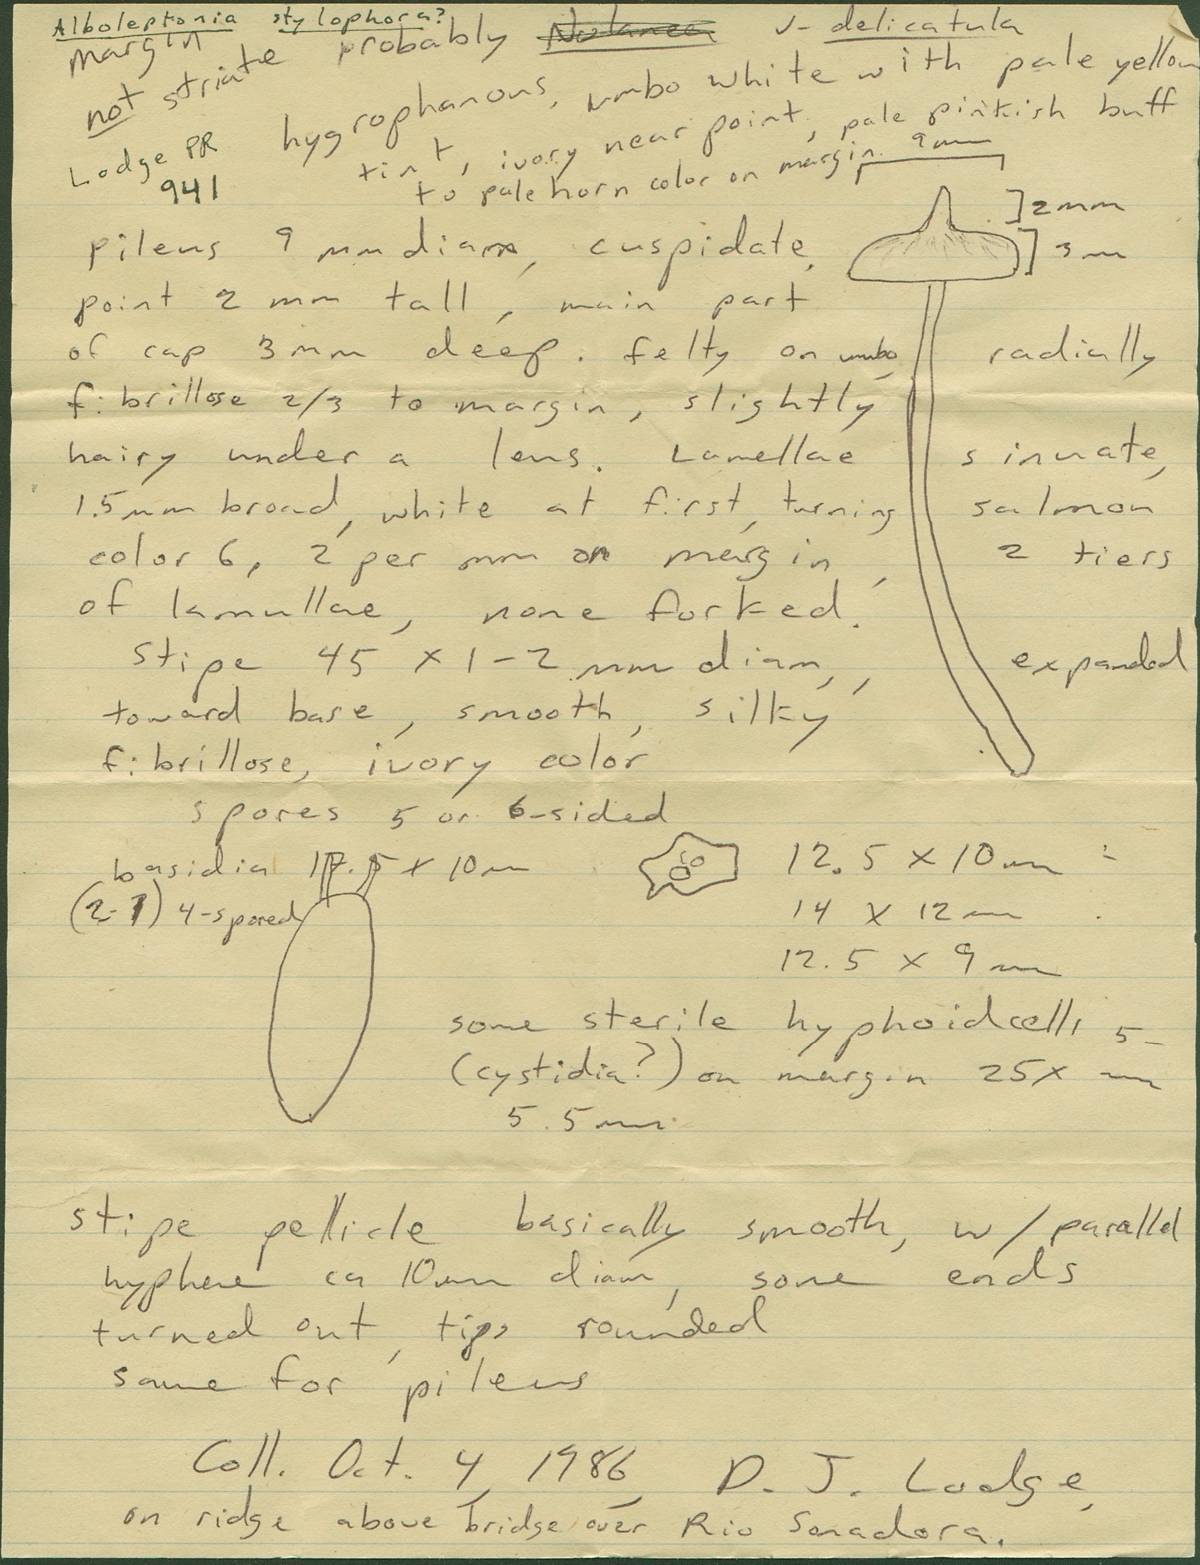 Alboleptonia stylophora?
margin probably Nolanea v- delicatula
not striate
hygrophanous, umbo white with pale yellow
tint, ivory near point, pale pinkish buff
to pale horn color on margin. 9mm
Lodge PR
941
]2mm
]3m
pileus 9 mm diam, cuspidate,
point 2 mm tall, main part
of cap 3mm deep. felty on umbo, radially
fibrillose 2/3 to margin, slightly
hairy under a lens. Lamellae sinuate,
1.5mm broad, white at first, turning salmon
color 6, 2 per mm on margin, 2 tiers
of lamullae, none forked.
stipe 45 x 1-2 mm diam, expanded
toward base, smooth, silky
fibrillose, ivory color
spores 5 or 6-sided
basidia x 10m 12.5 x 10um
(2-) 4-spored 14 x 12um
12.5 x 9um
some sterile hyphoid cells 5-
(cystidia?) on margin 25x um
5.5um
stipe pellicle basically smooth, w/parallel
hyphae ca 10um diam, some ends
turned out, tips rounded
same for pileus
Coll. Oct. 4, 1986, D. J. Lodge,
on ridge above bridge over Rio Sonadora.